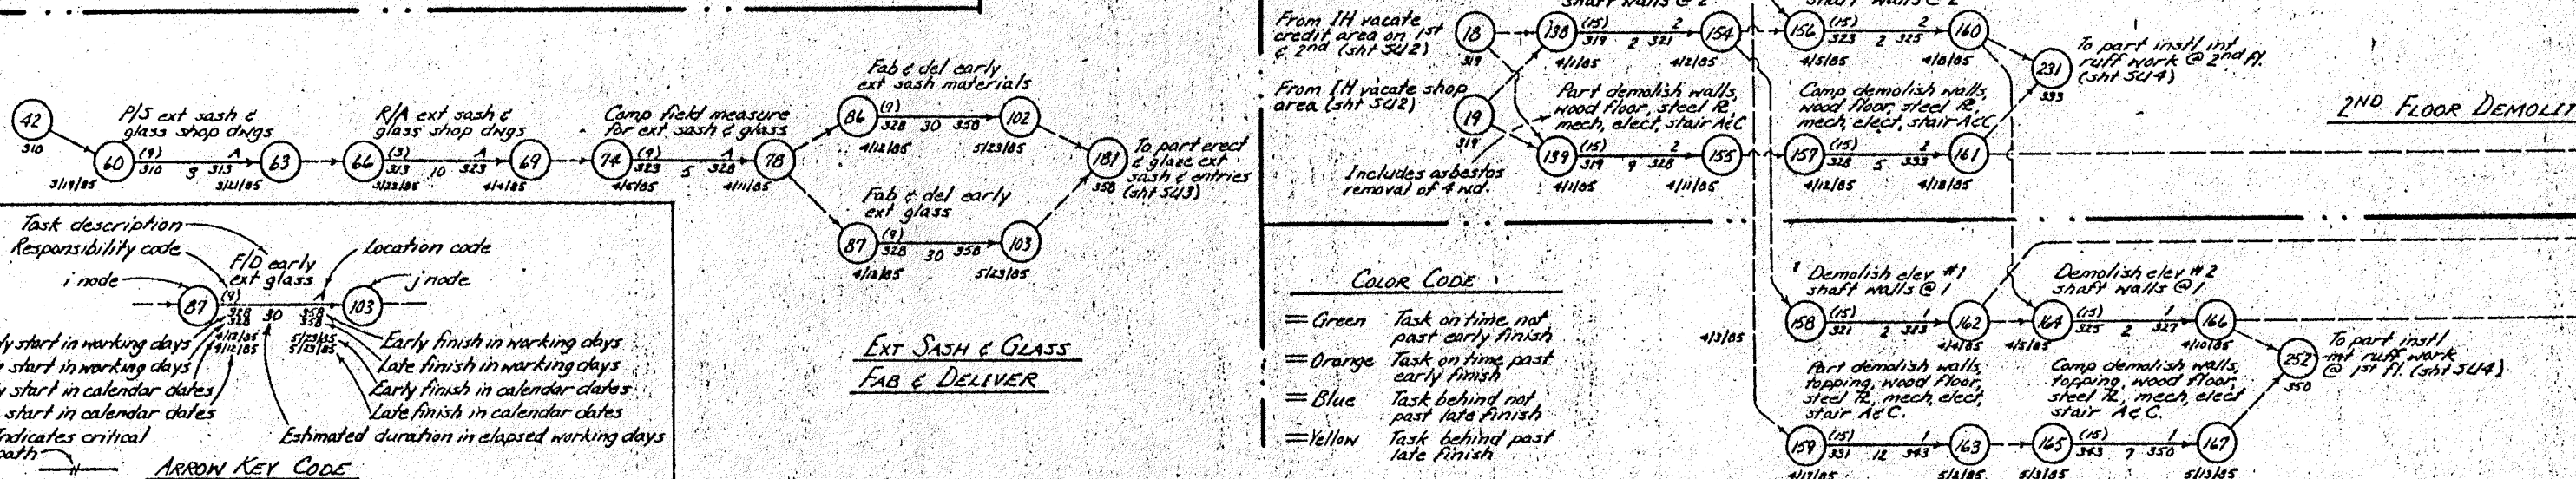 42
310
P/S ext sash &
glass shop dwgs
60
(9)
310
3
A
313
3/19/85
3/21/85
63
R/A ext sash &
glass shop dwgs
66
(3)
313
10
A
323
3/22/85
4/4/85
69
Comp field measure
for ext sash & glass
74
(9)
323
5
A
328
4/5/85
4/11/85
78
Fab & del early
ext sash materials
86
(9)
328 30 358
4/12/85
5/23/85
102
Fab & del early
ext glass
87
(9)
328 30 358
4/12/85
5/23/85
103
181
358
To part erect
& glaze ext
sash & entries
(sht SU3)
EXT SASH & GLASS
FAB & DELIVER
Task description
Responsibility code
i node
F/D early
ext glass
Location code
j node
87
(9)
A
103
328
328
30
358
358
4/12/85
4/12/85
5/23/85
5/23/85
start in working days
start in working days
start in calendar dates
start in calendar dates
Early finish in working days
Late finish in working days
Early finish in calendar dates
Late finish in calendar dates
Indicates critical
path
Estimated duration in elapsed working days
ARROW KEY CODE
From IH vacate
credit area on 1st
& 2nd (sht SU2)
18
319
From IH vacate shop
area (sht SU2)
19
319
Includes asbestos
removal of 4 wd.
shaft walls @ 2
138
(15)
319
2
2
321
4/1/85
4/2/85
154
Part demolish walls,
wood floor, steel PL,
mech, elect, stair A&C
139
(15)
319
9
2
328
4/1/85
4/11/85
155
shaft walls @ 2
156
(15)
323
2
2
325
4/5/85
4/8/85
160
Comp demolish walls,
wood floor, steel PL,
mech, elect, stair A&C
157
(15)
328
5
2
333
4/12/85
4/18/85
161
231
333
To part instl int
ruff work @ 2nd fl.
(sht SU4)
2ND FLOOR DEMOLIT
COLOR CODE
Green Task on time not
past early finish
Orange Task on time past
early finish
Blue Task behind not
past late finish
Yellow Task behind past
late finish
4/3/85
Demolish elev #1
shaft walls @ 1
158
(15)
321
2
1
323
4/4/85
162
Demolish elev #2
shaft walls @ 1
164
(15)
325
2
1
327
4/5/85
4/10/85
166
Part demolish walls,
topping, wood floor,
steel PL, mech, elect,
stair A&C.
159
(15)
331
12
1
343
4/17/85
163
Comp demolish walls,
topping, wood floor,
steel PL, mech, elect
stair A&C.
165
(15)
343
7
1
350
5/3/85
5/13/85
167
252
350
To part instl
int ruff work
@ 1st fl. (sht SU4)